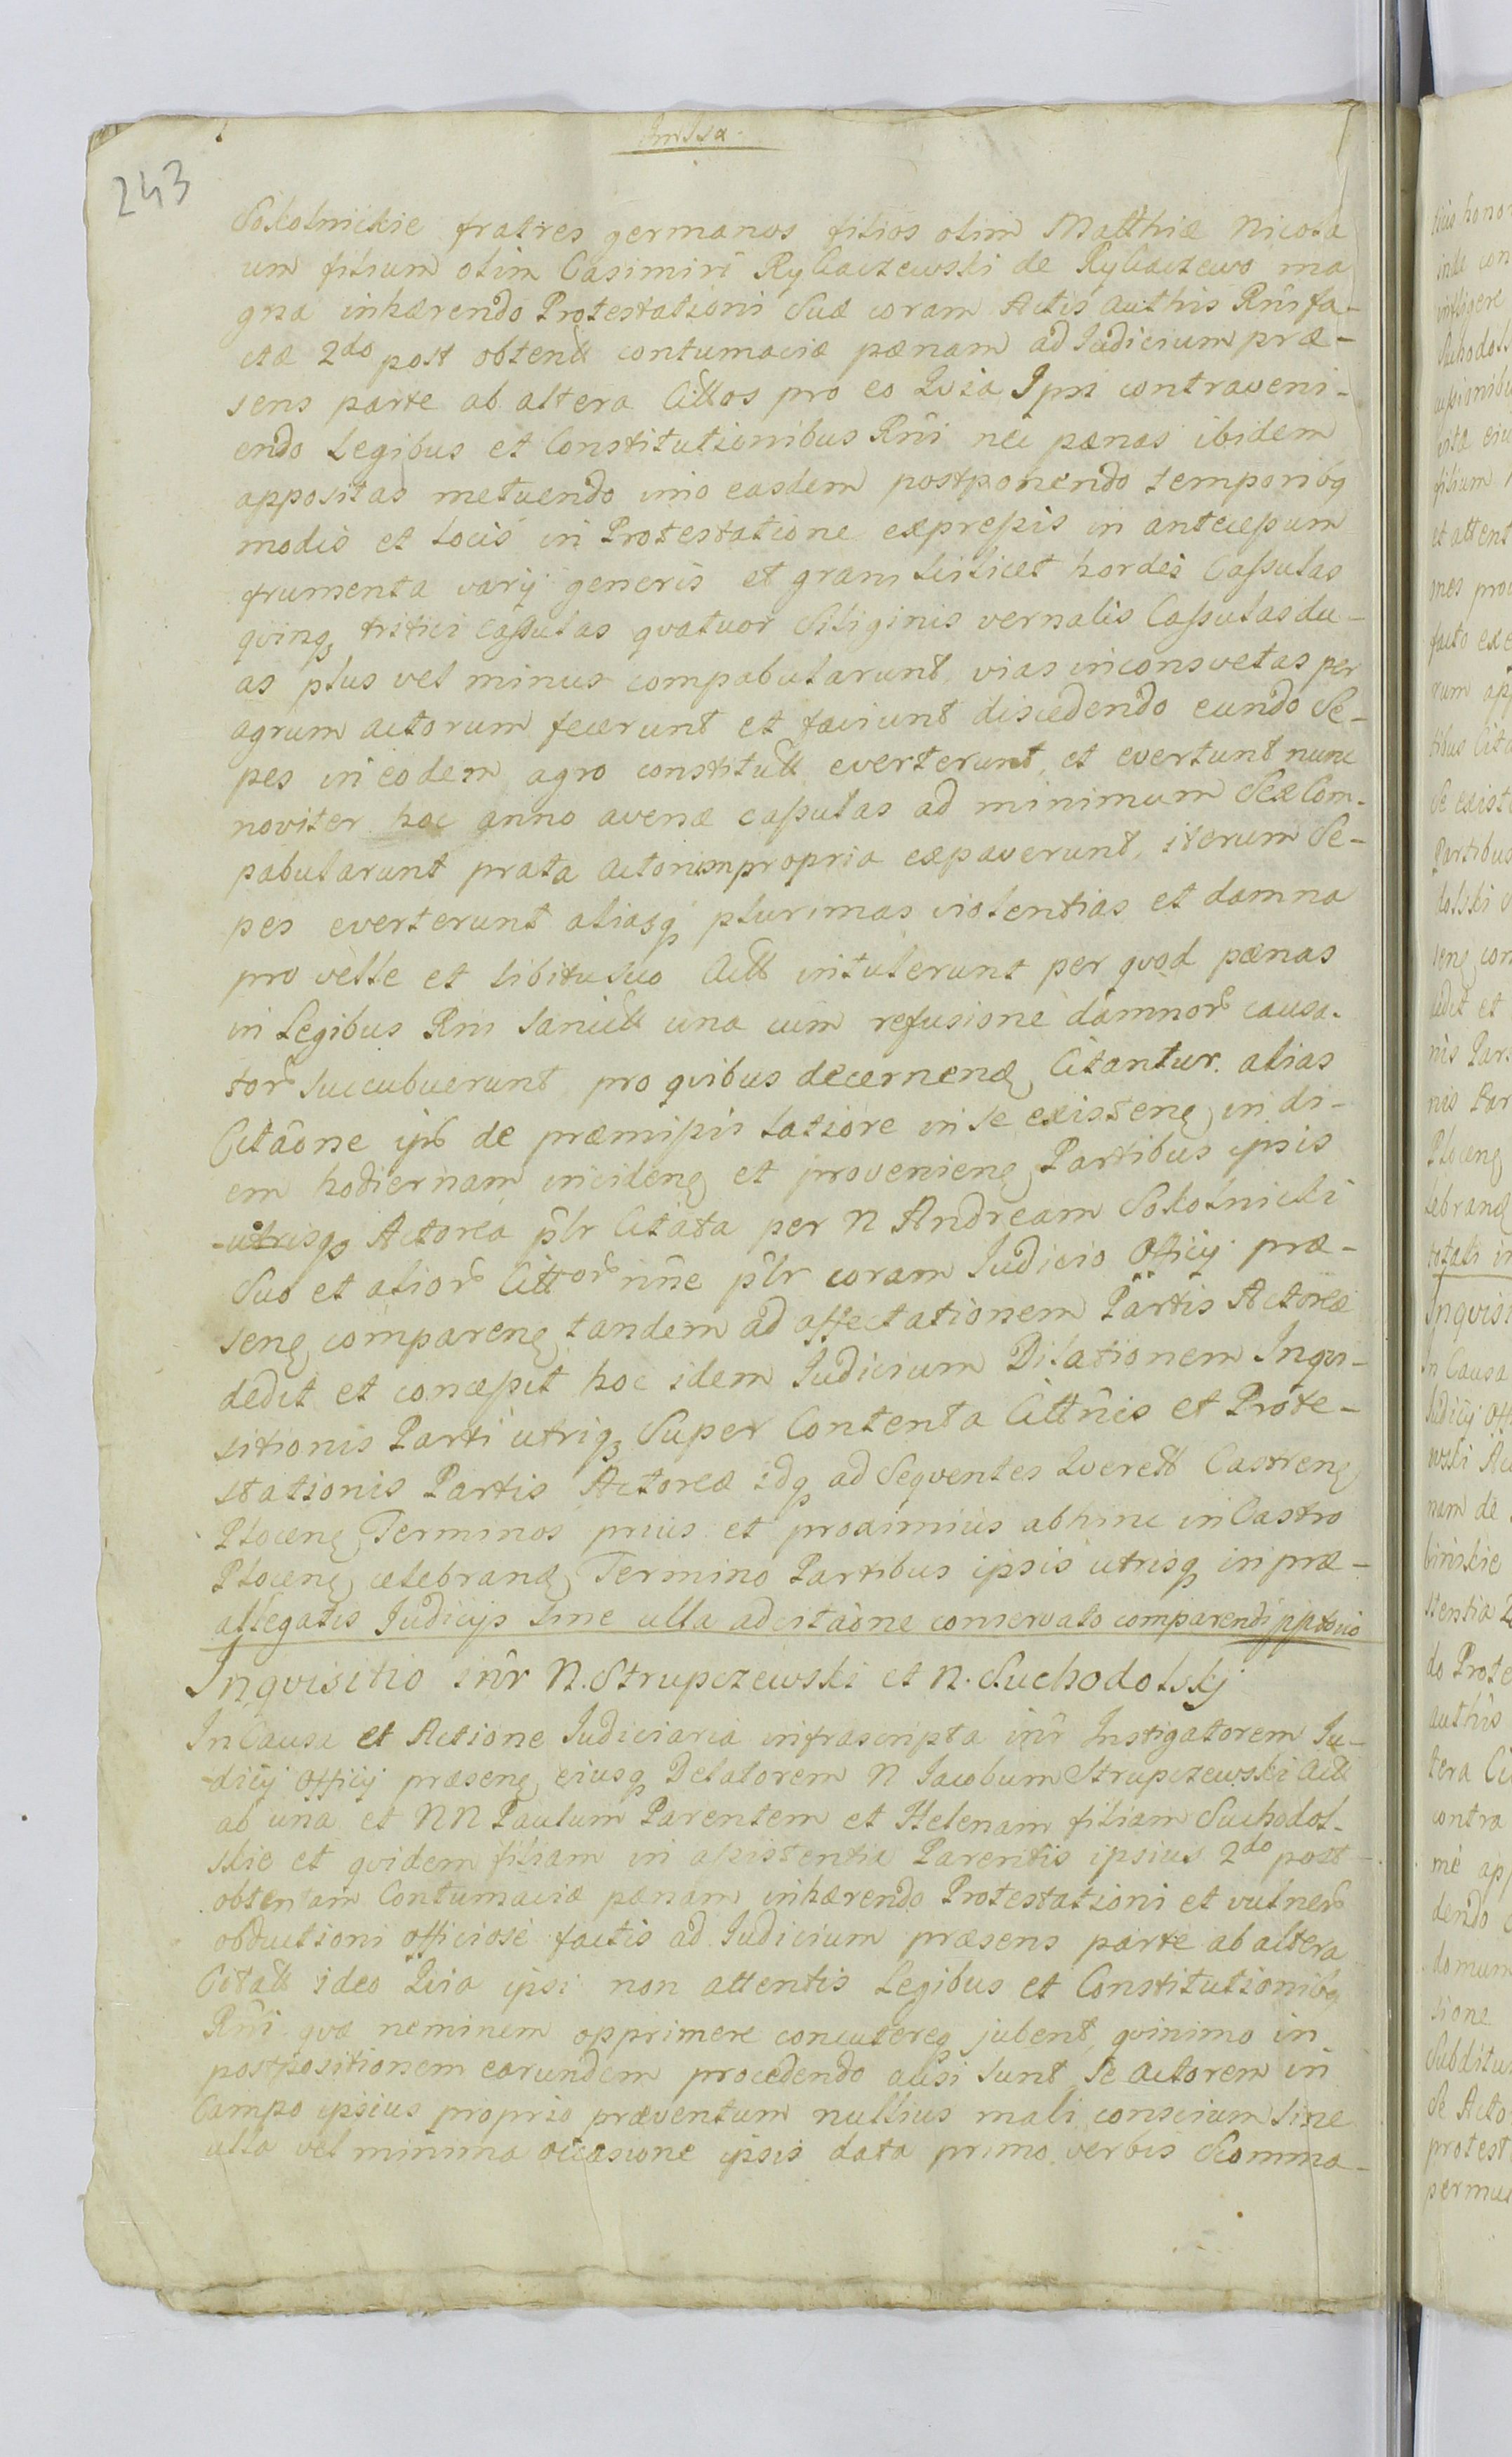 243
Sokolnickie fratres germanos filios olim Matthiæ Nicola
um filium olim Casimiri Rybaczewski de Rybaczewo ma
gna inhærendo Protestationi Suæ coram Actis authis Rni fa-
ctæ 2do post obtentt contumaciæ pænam ad Judicium præ-
sens parte ab altera Cittos pro eo Qvia Ipsi contraveni-
endo Legibus et Constitutionibus Rni nec pænas ibidem
appositas metuendo imo easdem postponendo temporibq
modis et locis in Protestatione expressis in antecessum
frumenta varij generis et grani scilicet hordei Cassulas
qvinq tritici cassulas qvatuor Siliginis vernalis Cassulas du-
as plus vel minus compabularunt, vias inconsvetas per
agrum actorum fecerunt et faciunt discedendo eundo Se-
pes in eodem agro constitutt everterunt, et evertunt nunc
noviter hoc anno avenæ cassulas ad minimum Sex Com-
pabularunt prata actorum propria expaverunt, iterum Se-
pes everterunt aliasq plurimas violentias et damna
pro velle et libitu suo Actt intulerunt per qvod pænas
in Legibus Rni sancitt una cum refusione damnor causa-
tor succubuerunt, pro qvibus decernend Citantur. alias
Citaõne ipso de præmissis latiore in se existeng in di-
em hodiernam incideng et provenieng Partibus ipsis
utrisq Actorea plr Citata per N Andream Sokolnicki
Suo et alior Cittor nne plr coram Judicio Officij præ-
seng compareng tandem ad affectationem Partis Actoreæ
dedit et concessit hoc idem Judicium Dilationem Inqvi-
sitionis Parti utriq Super Contenta Cittnis et Prote-
stationis Partis Actoreæ idq ad Seqventes Qverell Castreng
Ploceng Terminos prius et proximius abhinc in Castro
Ploceng celebrand Termino Partibus ipsis utrisq in præ-
allegatis Judicijs sine ulla adcitaõne conservato comparendi pptorio
Inqvisitio inr N. Strupczewski et N. Suchodolskj
In Causa et Actione Judiciaria infrascripta inr Instigatorem Ju-
dicij Officij præseng eiusq Delatorem N Jacobum Strupczewski Actt
ab una et NN Paulum Parentem et Helenam filiam Suchodol-
skie et qvidem filiam in assistentia Parentis ipsius 2do post
obtentam Contumaciæ pænam inhærendo Protestationi et vulner
obductioni officiose factis ad Judicium præsens parte ab altera
Citatt ideo Qvia ipsi non attentis Legibus et Constitutionibq
Rni qvæ neminem opprimere concutereq jubent, qvinimo in
postpositionem earundem procedendo ausi sunt Se actorem in
Campo ipsius proprio præventum nullius mali conscium sine
ulla vel minima occasione ipsis data primo verbis Scomma-